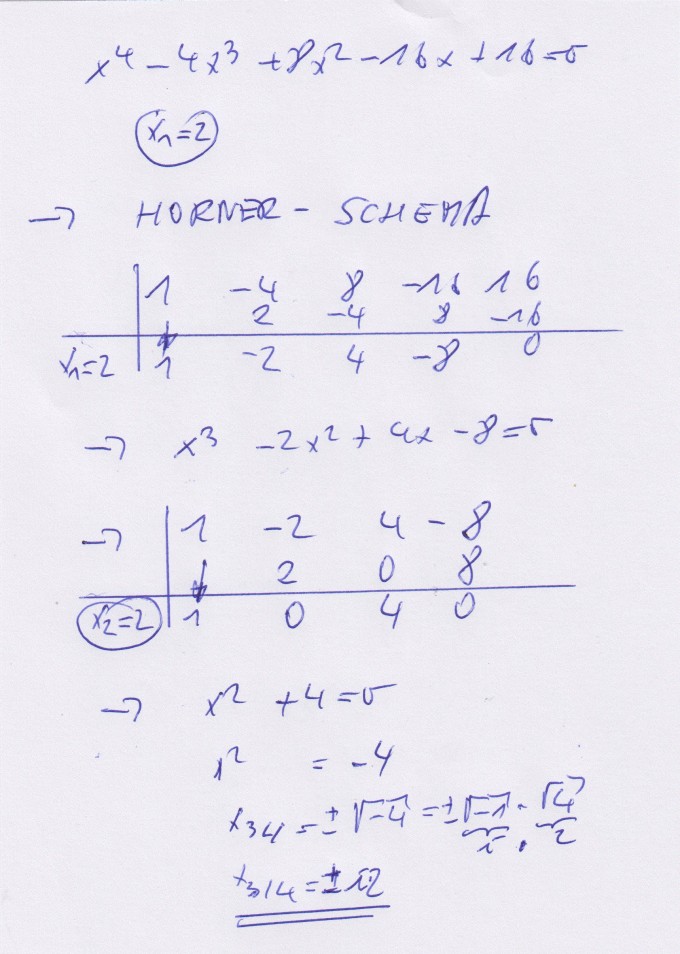 x⁴ - 4x³ + 8x² - 16x + 16 = 0
x₁ = 2
→ HORNER - SCHEMA
1 -4 8 -16 16
2 -4 8 -16
x₁=2 1 -2 4 -8 0
→ x³ - 2x² + 4x - 8 = 0
→ 1 -2 4 -8
2 0 8
x₂=2 1 0 4 0
→ x² + 4 = 0
x² = -4
x₃₄ = ±√-4 = ±√-1 · √4
i · 2
x₃/₄ = ± i2